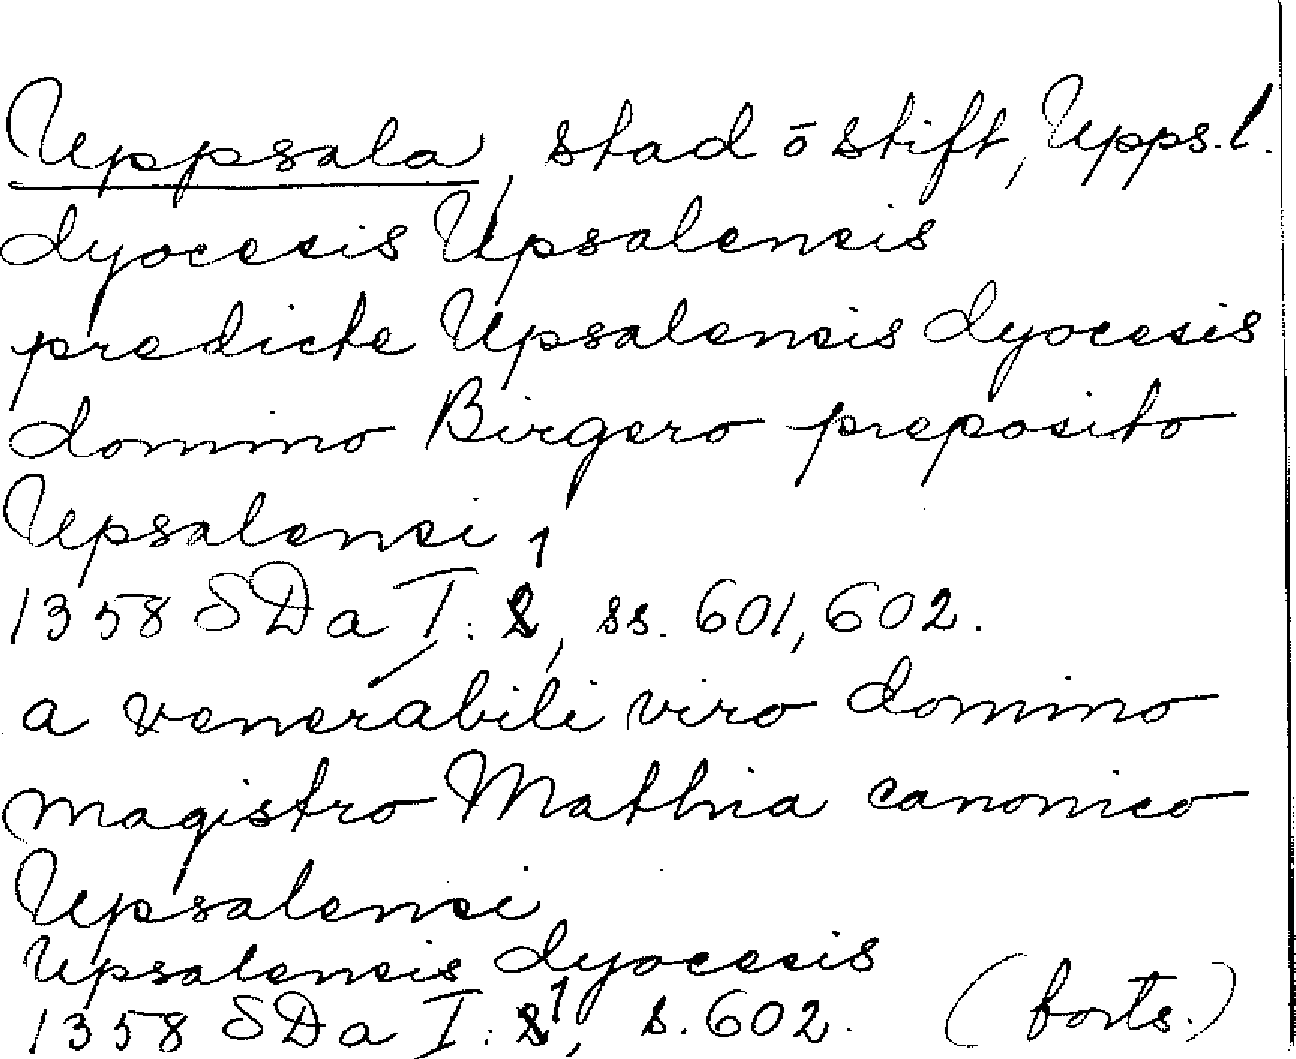 Uppsala, stad o stift, Upps.l.
dyocesis Upsalensis
predicte Upsalensis dyocesis
domino Birgero preposito
Upsalensi
1358 SDa I: 1, ss. 601, 602.
a venerabili viro domino
magistro Mathia canonico
Upsalensi
Upsalensis dyocesis
1358 SDa I: 1, s. 602. (forts.)